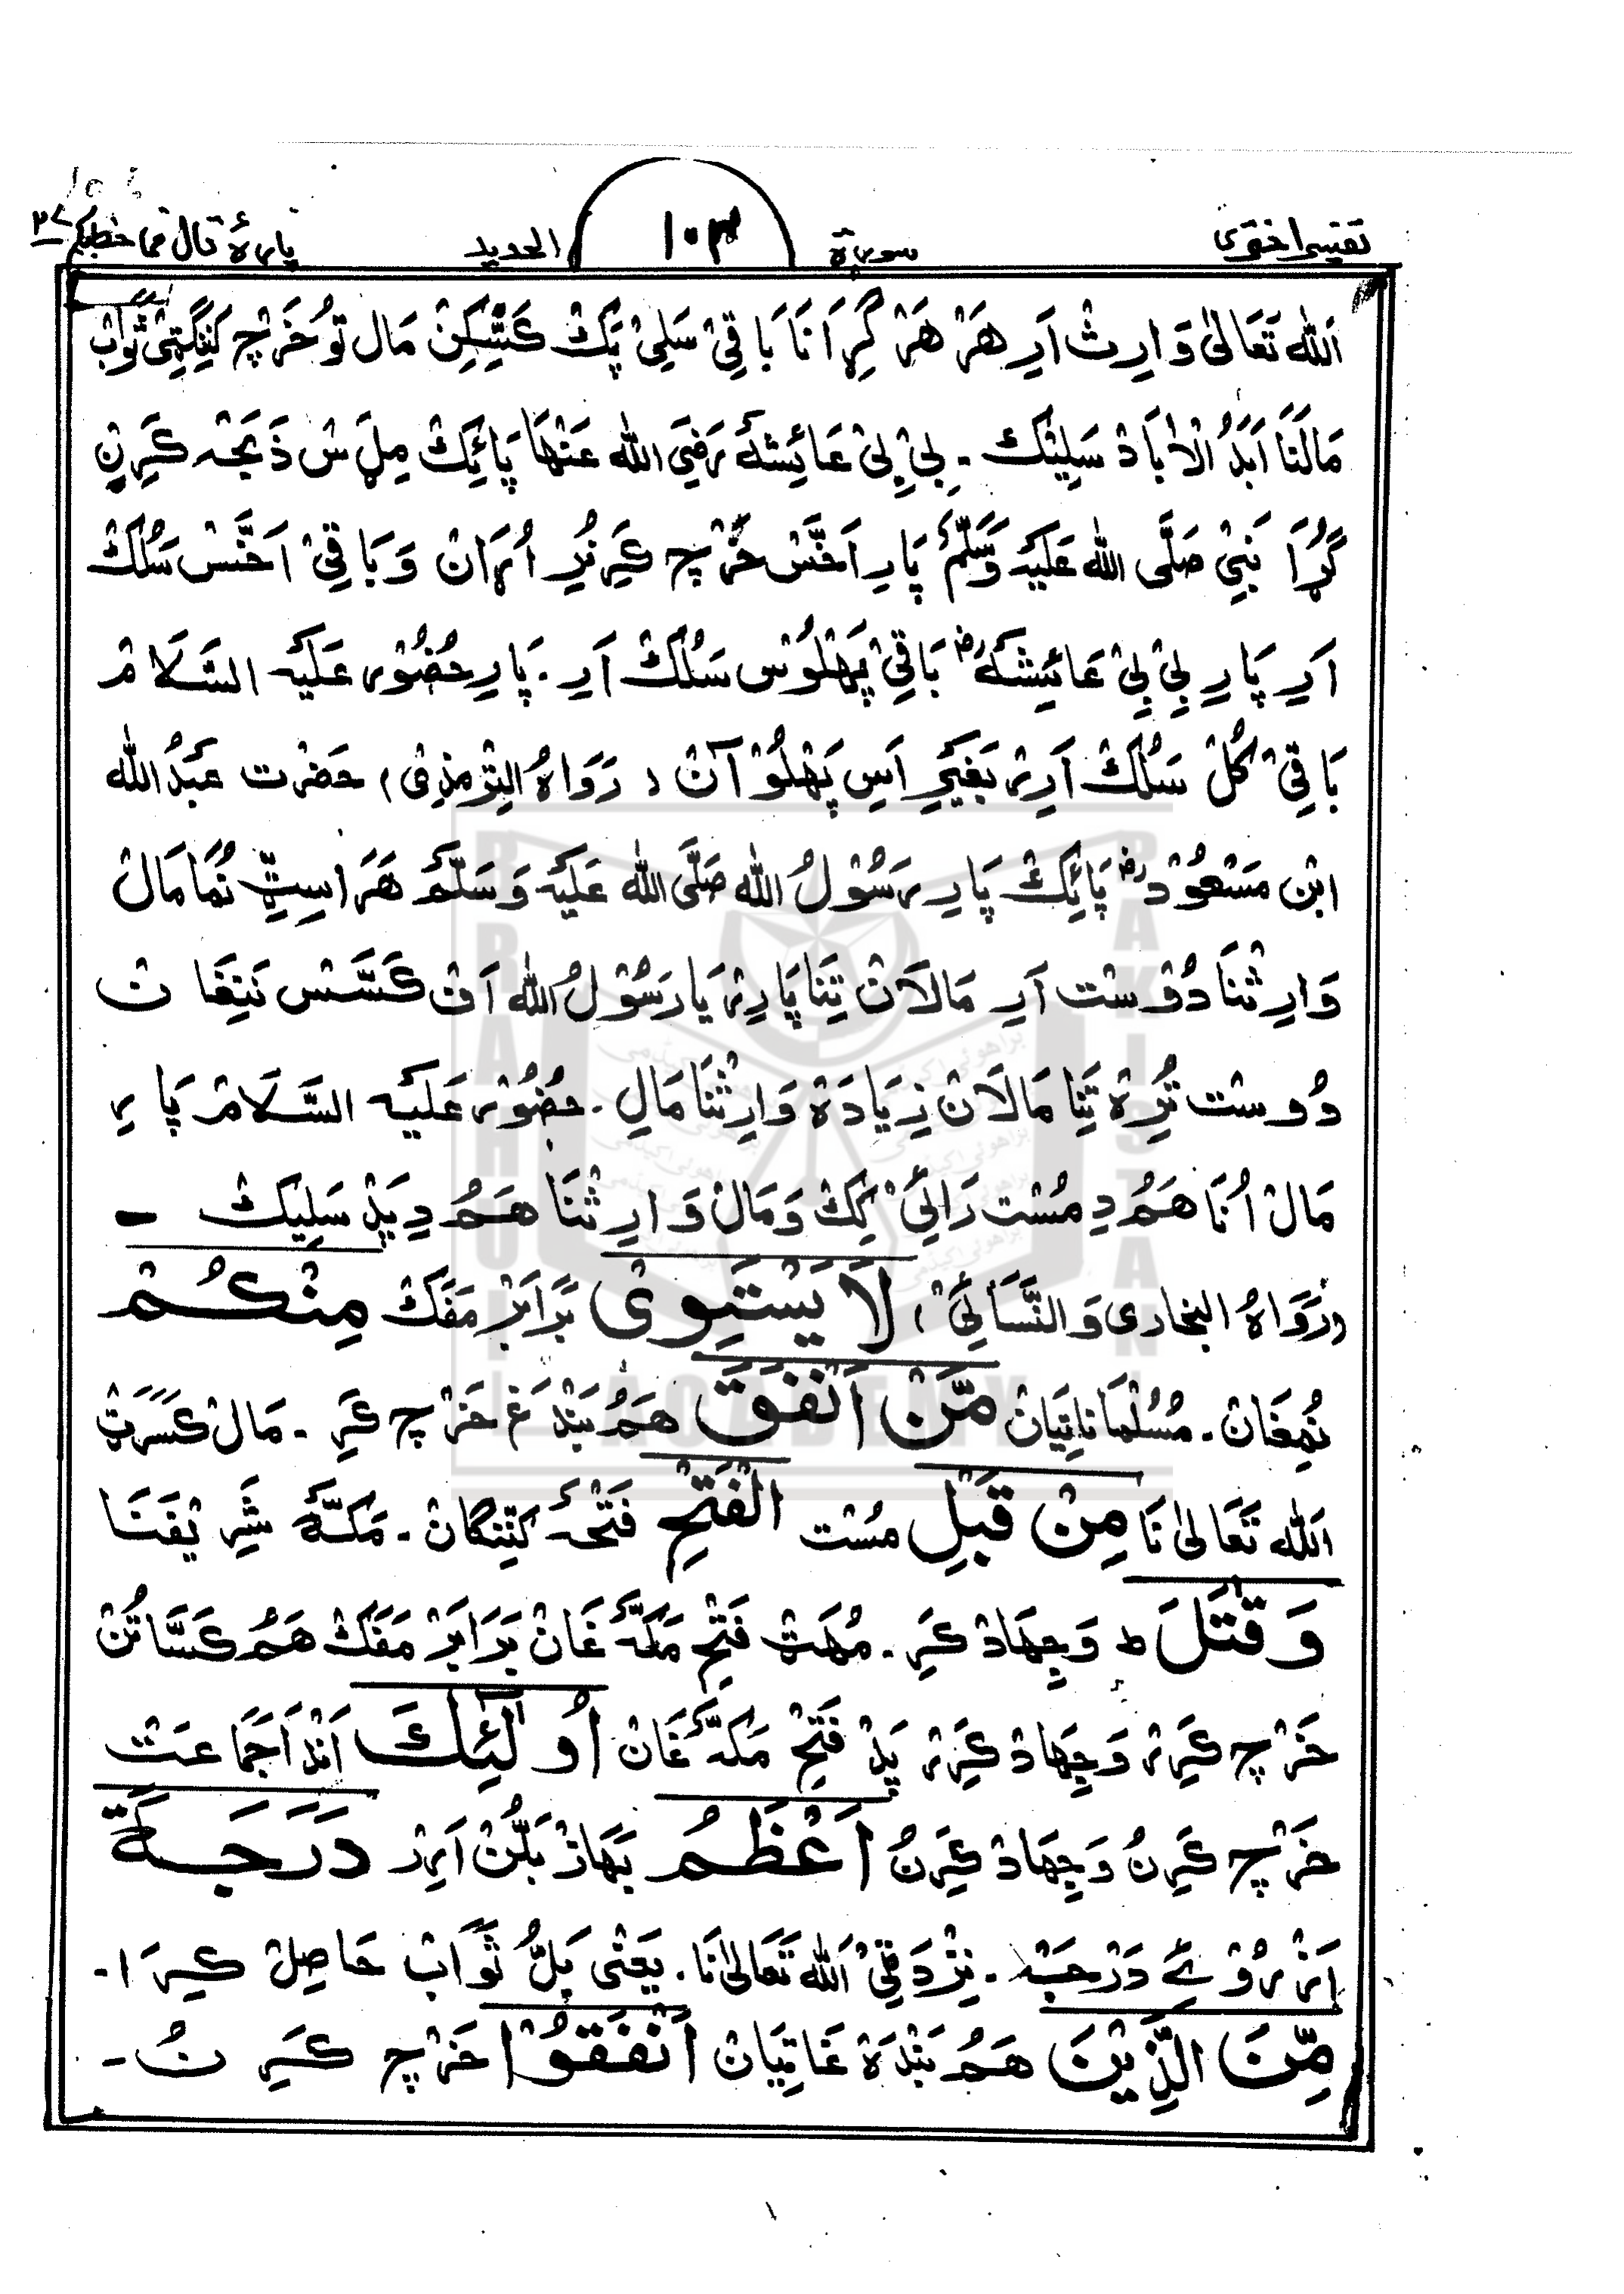 تفسیر اخقری سورة ١٠٣ الحدید پارهٔ قال فما خطبکم ٢٧
اَللّٰه تَعَالیٰ وَارِثْ اَرِ هَرْ هَرْ گِڑَانَا بَاقِیْ سَلِیْ پَکْ مَالْ تُو خَرْچ ثَوَابْ
مَالَنَا اَبَدُ الْاٰبَادْ سَلِیْنِکْ ۔ بِیْ بِیْ عَائِشَهٗ رَضِیَ اللّٰه عَنْهَا پَائِکْ مِلِ سْ ذَبْحَہ کَرِنٖ
گُڑَا نَبِیْ صَلَّی اللّٰه عَلَیْهِ وَسَلَّمْ پَارِ اَخَسْ خَرْچ کَرِنْدِ اُرَانْ وَبَاقِیْ اَخَسْ سَلُکْ
اَرِ پَارِ بِیْ بِیْ عَائِشَهٗ رض بَاقِیْ پَهْلُوْس سَلُکْ اَرِ ۔ پَارِ حُضُوْر عَلَیْهِ السَّلَامْ
بَاقِیْ کُلْ سَلُکْ اَرِرْ بَغَیْرِ اَسِ پَهْلُوْ آنْ ( رَوَاهُ التِّرْمِذِیْ ) حَضْرَت عَبْدُ اللّٰه
ابْن مَسْعُوْد رض پَائِکْ پَارِ رَسُوْلُ اللّٰه صَلَّی اللّٰه عَلَیْهِ وَسَلَّمْ هَرَاسِٹِ نُمَا مَالْ
وَارِثْنَا دُوْسْت اَرِ مَالَانْ تِنَا پَارِرْ یَا رَسُوْلُ اللّٰه اَفْ کَسَّسْ نَنِغَا نْ
دُوسْت تُرِهْ تِنَا مَالَانْ زِیَادَهْ وَارِثْنَا مَالِ ۔ حُضُوْر عَلَیْهِ السَّلَامْ پَارِ
مَالْ اُنَا هَمُدِ مُسْت رَائِیْ کِکْ وَمَالْ وَارِثْنَا هَمُدِ پَدْ سَلِیکْ ۔
(رَوَاهُ البخاری وَالنَّسَائِیْ) لَا یَسْتَوِیْ بَرَابَرْ مَفَکْ مِنْکُمْ
نُمِغَانْ ۔ مُسْلْمَانَاتِیَانْ مَّنْ اَنْفَقَ هَمُ بَنْدَغ خَرْچ کَرِ ۔ مَالْ کَسَرَٹِ
اَللّٰه تَعَالیٰ نَا مِنْ قَبْلِ مُسْت الْفَتْحِ فَتْحَہ کَنِنْگَانْ ۔ مَکَّهٗ شَرِیْفَنَا
وَقٰتَلَ ط وَجِهَادْ کَرِ ۔ مُهَٹْ فَتْحِ مَکَّهٗ غَانْ بَرَابَرْ مَفَکْ هَمُ کَسَّاتُنْ
خَرْچ کَرِرْ وَجِهَادْ کَرِرْ پَدْ فَتْحِ مَکَّهٗ غَانْ اُولٰٓئِکَ اَنْدَا جَمَاعَتْ
خَرْچ کَرِنُ وَجِهَادْ کَرِنُ اَعْظَمُ بَهَازْ بَلُّنْ اَرِرْ دَرَجَةً
اَزْ رُوْئِے دَرْجَہ ۔ نِزْدِ قِیْ اَللّٰه تَعَالیٰ نَا ۔ یَعْنِی بَلُّ ثَوَابْ حَاصِلْ کِرَا ۔
مِّنَ الَّذِیْنَ هَمُ بَنْدَهْ غَاتِیَانْ اَنْفَقُوْا خَرْچ کَرِ نُ ۔
BRAHUI ACADEMY PAKISTAN